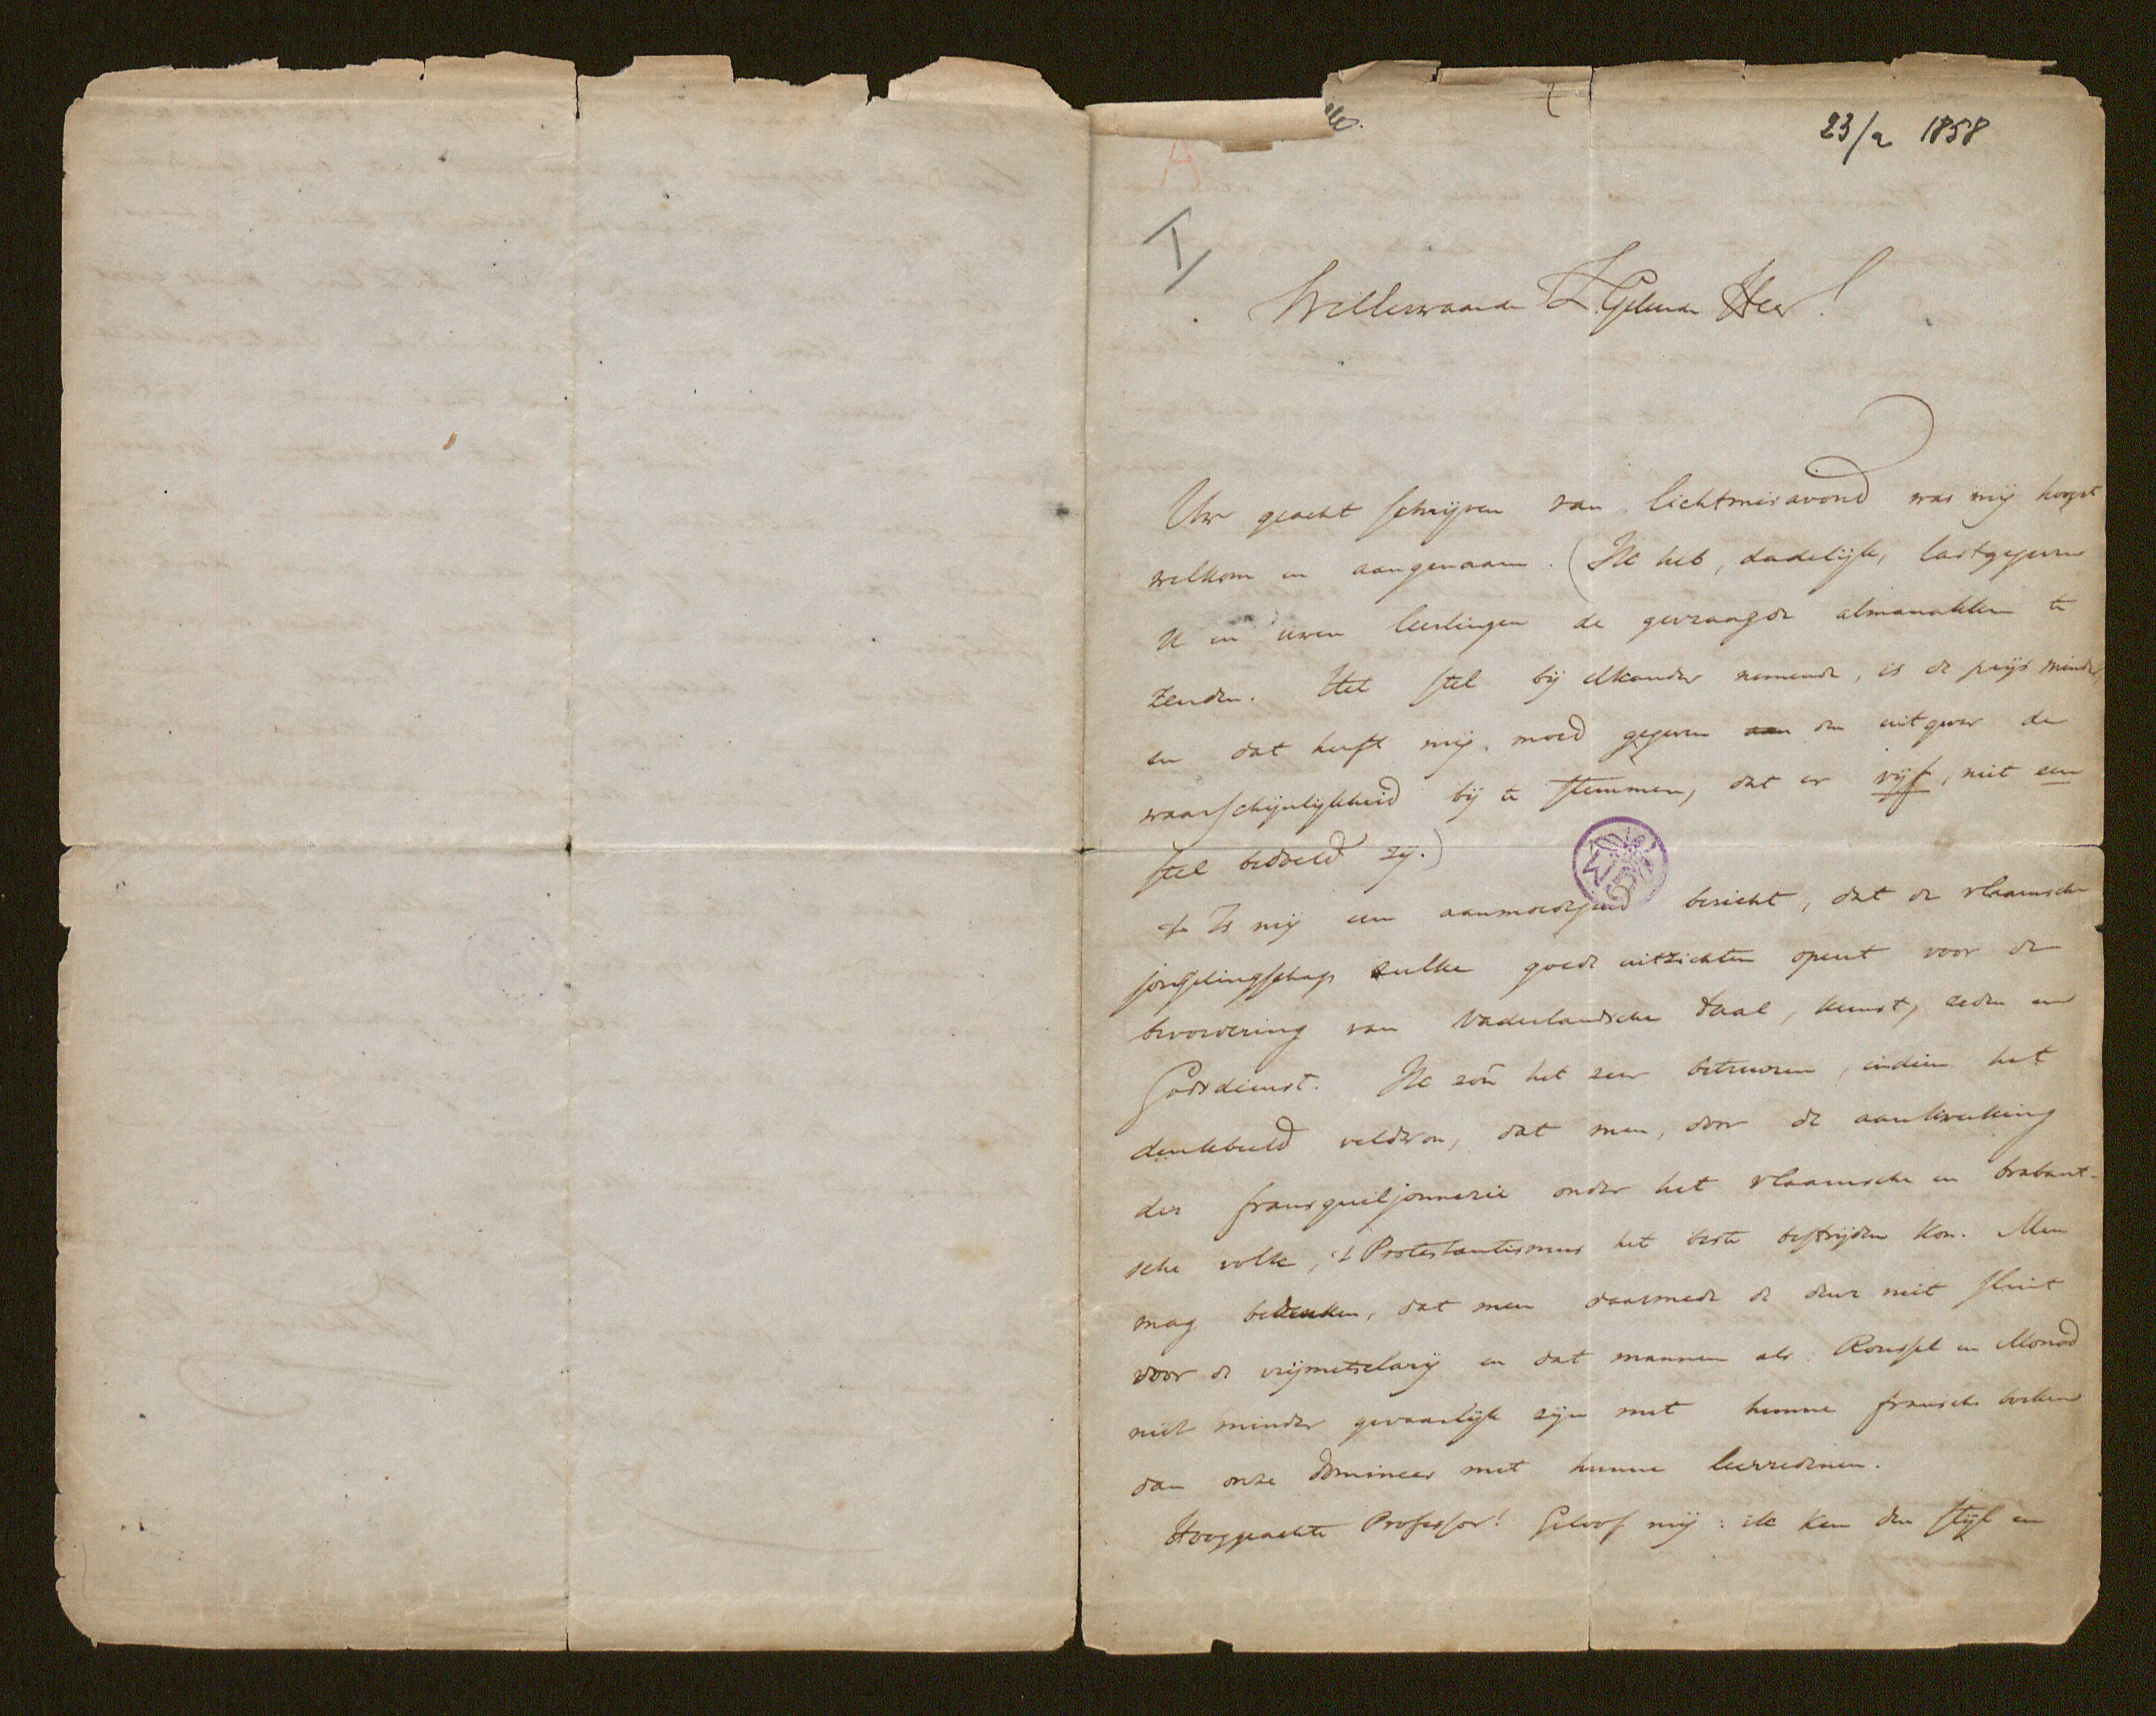 23/2 1858
A
I
WelEerwaarde Z. Geleerde Heer!
Uw geacht schrijven van lichtmisavond was mij hoogst
welkom en aangenaam. (Ik heb, dadelijk, lastgegeven
U en uwen leerlingen de gevraagde almanakken te
zenden. Het stel bij elkander nemende, is de prijs minder,
en dat heeft mij moed gegeven den uitgever de
waarschijnlijkheid bij te stemmen, dat er vijf, niet een
stel bedoeld zij.)
't Is mij een aanmoedigend bericht, dat de vlaamsche
jongelingschap zulke goede uitzichten opent voor de
bevordering van Vaderlandsche taal, kunst, zeden en
Godsdienst. Ik zoû het zeer betreuren, indien het
denkbeeld veldwon, dat men, door de aankweeking
der fransquiljonnerie onder het vlaamsche en brabant-
sche volk, 't Protestantismus het beste bestrijden kon. Men
mag bedenken, dat men daarmede de deur niet sluit
voor de vrijmetselarij en dat mannen als Roussel en Monod
niet minder gevaarlijk zijn met hunne fransche boeken
dan onze dominees met hunne leerredenen.
Hooggeachte Professor! Geloof mij: ik ken den stijl en